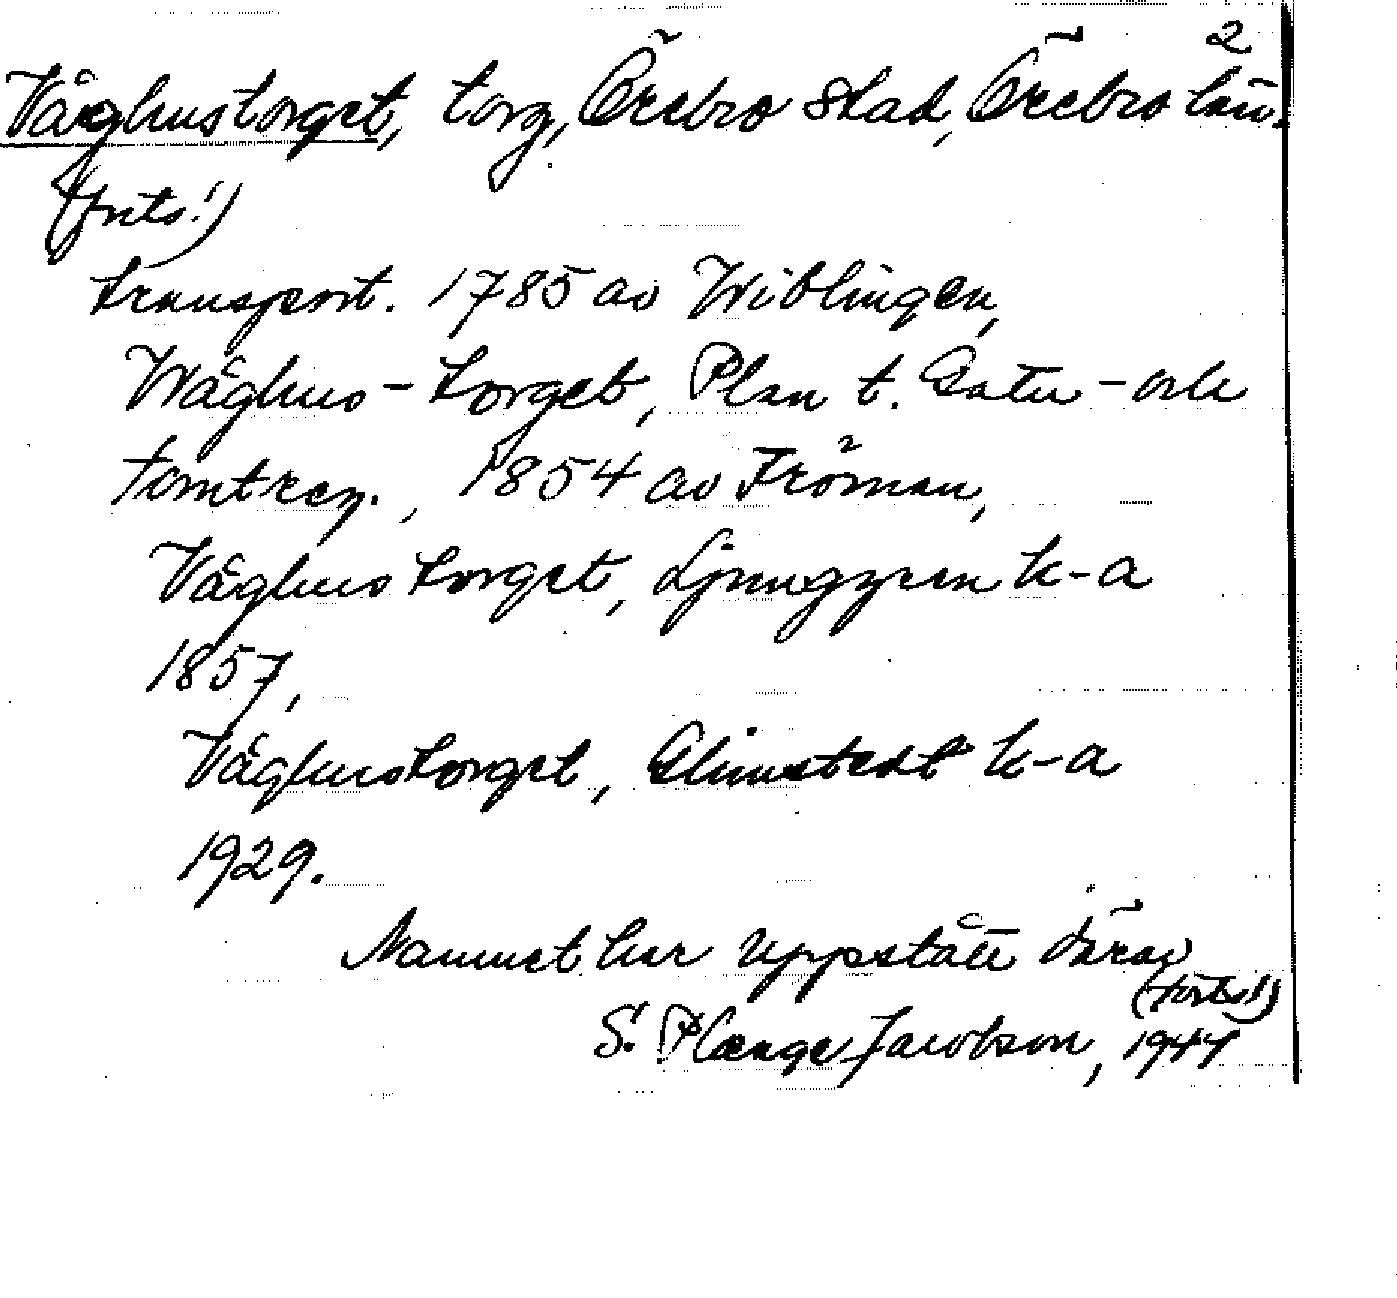 2
Våghustorget, torg, Örebro stad, Örebro län.
(forts!)
transport. 1785 av Wiblingen,
Wåghus-torget, Plan t. Gatu- och
tomtreg., 1854 av Fröman,
Våghustorget, Ljunggren k-a
1857,
Våghustorget, Glimstedt k-a
1929.
Namnet har uppstått därav
(forts!)
S. Plænge Jacobson, 1947